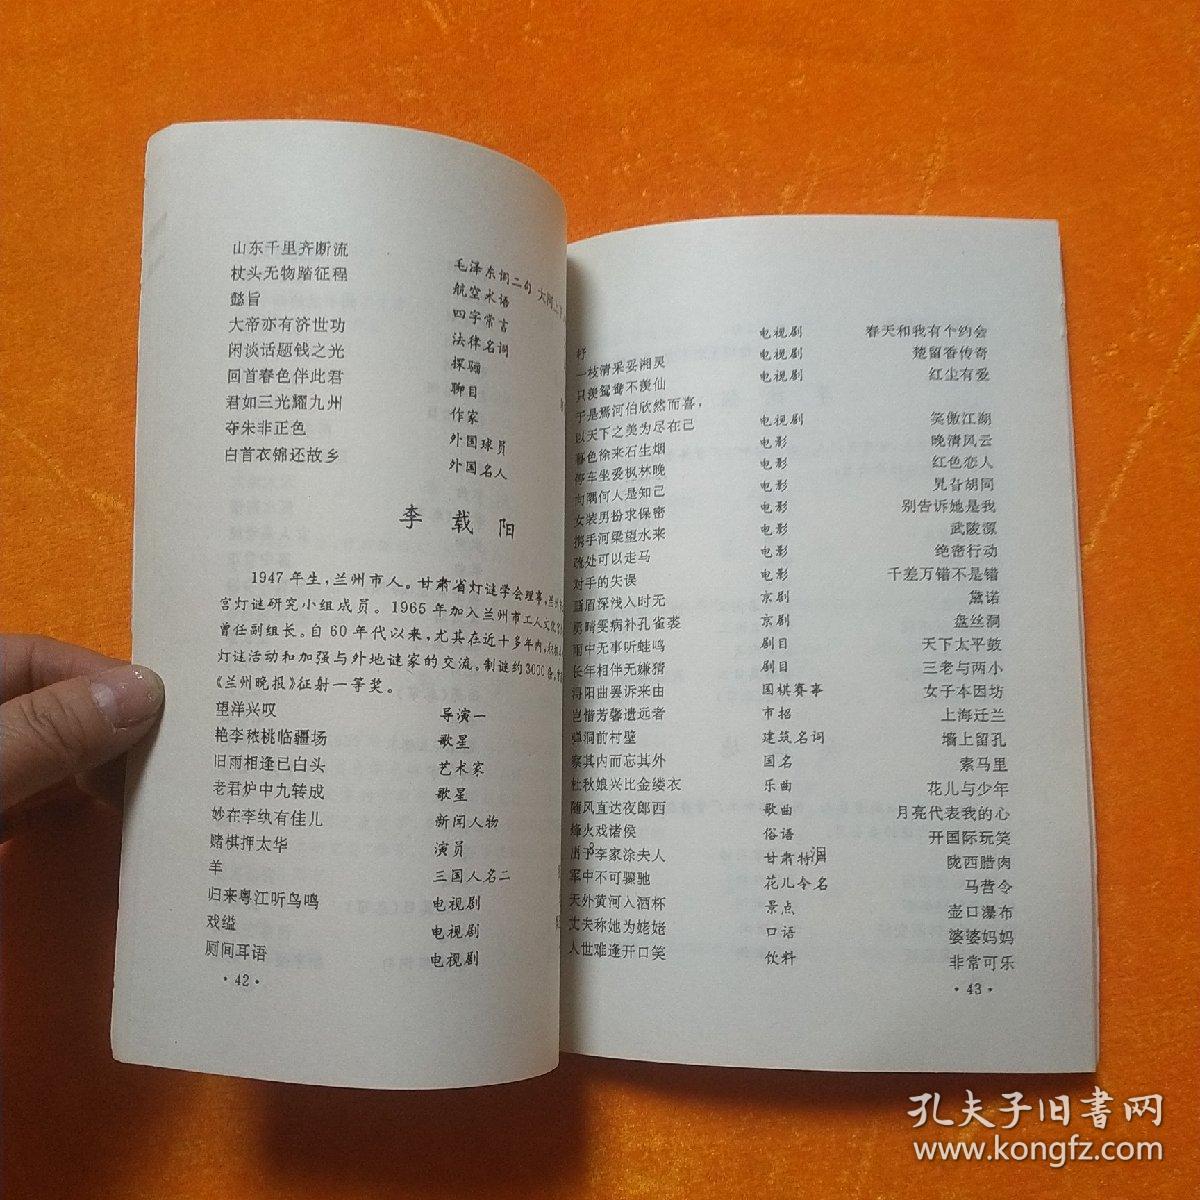 山东千里齐断流 毛泽东词二句 大河上下
杖头无物踏征程 航空术语
懿旨 四字常言
大帝亦有济世功 法律名词
闲谈话题钱之光 探骊
回首春色伴此君 聊目
君如三光耀九州 作家
夺朱非正色 外国球员
白首衣锦还故乡 外国名人
李载阳
1947年生,兰州市人。甘肃省灯谜学会理事,兰州
宫灯谜研究小组成员。1965年加入兰州市工人文化
曾任副组长。自60年代以来,尤其在近十多年内,
灯谜活动和加强与外地谜家的交流,制谜约3000条,
《兰州晚报》征射一等奖。
望洋兴叹 导演一
艳李秾桃临疆场 歌星
旧雨相逢已白头 艺术家
老君炉中九转成 歌星
妙在李纨有佳儿 新闻人物
赌棋押太华 演员
羊 三国人名二
归来粤江听鸟鸣 电视剧
戏缢 电视剧
厕间耳语 电视剧
·42·
好 电视剧 春天和我有个约会
一枝清采妥湘灵 电视剧 楚留香传奇
只羡鸳鸯不羡仙 电视剧 红尘有爱
于是焉河伯欣然而喜,
以天下之美为尽在己 电视剧 笑傲江湖
暮色徐来石生烟 电影 晚清风云
停车坐爱枫林晚 电影 红色恋人
向隅何人是知己 电影 旯旮胡同
女装男扮求保密 电影 别告诉她是我
携手河梁望水来 电影 武陵源
疏处可以走马 电影 绝密行动
对手的失误 电影 千差万错不是错
画眉深浅入时无 京剧 黛诺
勇晴雯病补孔雀裘 京剧 盘丝洞
雨中无事听蛙鸣 剧目 天下太平鼓
长年相伴无嫌猜 剧目 三老与两小
浔阳曲罢诉来由 国棋赛事 女子本因坊
岂惜芳馨遗远者 市招 上海迁兰
弹洞前村壁 建筑名词 墙上留孔
察其内而忘其外 国名 索马里
杜秋娘兴比金缕衣 乐曲 花儿与少年
随风直达夜郎西 歌曲 月亮代表我的心
烽火戏诸侯 俗语 开国际玩笑
出于李家涂夫人 甘肃特 陇西腊肉
军中不可骤驰 花儿令名 马营令
天外黄河入酒杯 景点 壶口瀑布
丈夫称她为姥姥 口语 婆婆妈妈
人世难逢开口笑 饮料 非常可乐
·43·
孔夫子旧書网
www.kongfz.com